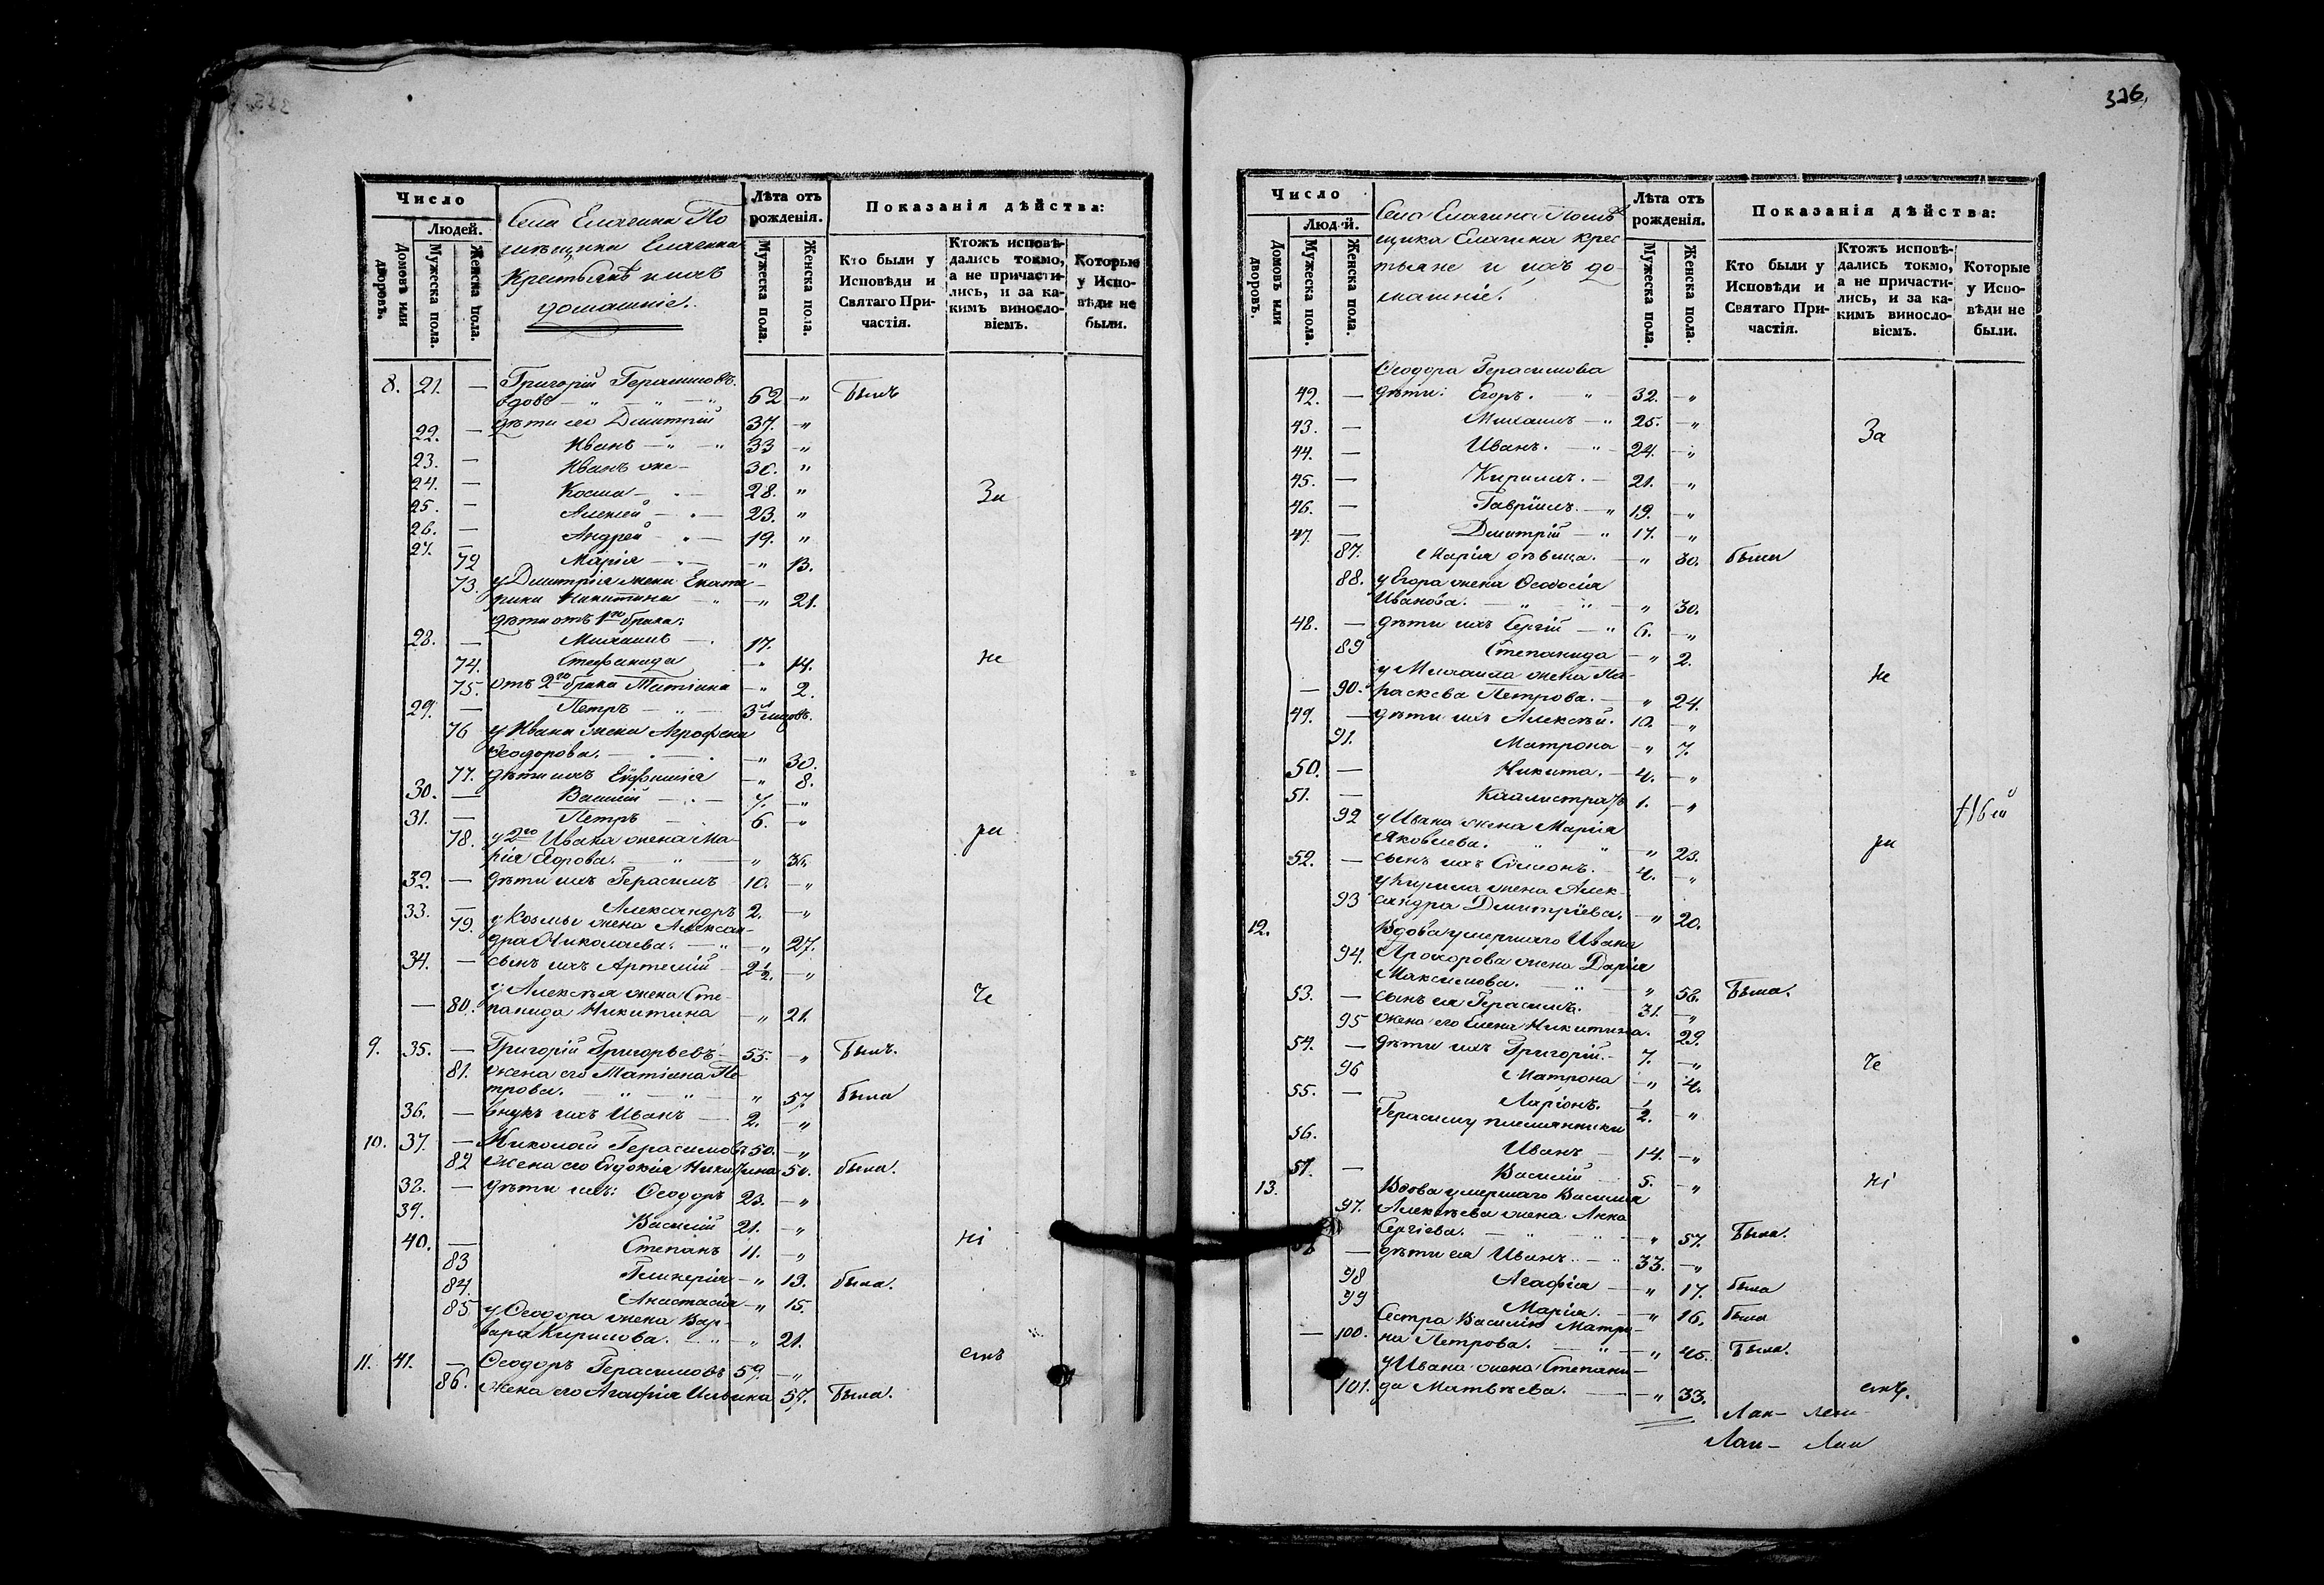 Число
Людей.
Домовъ или дворовъ.
Мужеска пола.
Женска пола.
Села Елагина По
мѣщика Елагина
Крестьянѣ и ихъ
домашніе.
Лѣта отъ рожденія.
Мужеска пола.
Женска пола.
Показанія дѣйства:
Кто были у Исповѣди и Святаго Причастія.
Ктожъ исповѣдались токмо, а не причастились, и за какимъ винословіемъ.
Которые у Исповѣди не были.
8. 21. — Григорій Герасимовъ.
вдовъ — „ — „ — „ 62 — „ Былъ
22. — дѣти его Димитрій 37. — „
23. — Иванъ — „ — „ 33 — „
24. — Иванъ же — 30. „
25. — Косма — 28. „ За
26. — Алексей — 23. „
27. — Андрей — 19. „
72 Марія — „ 13.
73. у Димитрія жена Екате-
рина Никитина — „ — „ 21.
дѣти отъ 1го брака:
28. — Михаилъ — 17.
74. Стефанида — „ 14. не
75. отъ 2го брака Татіана — „ 2.
29. — Петръ — „ 3
76 у Ивана жена Агрофена
Ѳеодорова. — „ 30.
77. дѣти ихъ Евфимія — „ 8.
30. — Василій — 7. — „
31. — Петръ — 6. — „
78. у 2го Ивана жена Ма-
рія — „ — „ 36. ра
32. — дѣти ихъ Герасимъ 10. — „
33. — Александръ 2. — „
79. у Козмы жена Алексан-
дра Николаева. — „ — „ 27.
34. — сынъ ихъ Артемій 2½. — „
у Алексѣя жена Сте-
— 80. панида Никитина — „ 21. че
9. 35. — Григорій Григорьевъ — 55. — „ Былъ.
81. жена его Татіана Пе-
трова. — „ — „ „ 57. была
36. — внукъ ихъ Иванъ — 2. — „
10. 37. — Николай Герасимовъ 50. — „
82 Жена его Евдокія Никитина 50. была.
38. — дѣти ихъ: Ѳеодоръ 23. — „
39. Василій 21. — „
40. — Степанъ 11. — „ ні
83 Гликерія — „ 13. была.
84. Анастасія — „ 15.
85. у Ѳеодора жена Вар-
вара Кирилова. — „ — „ 21.
11. 41. — Ѳеодоръ Герасимовъ 59. — „ емъ
86. жена его Агафія Ильина 57. Была.
326.
Число
Людей.
Домовъ или дворовъ.
Мужеска пола.
Женска пола.
Села Елагина Помѣ
щика Елагина крес
тьяне и ихъ до-
машніе.
Лѣта отъ рожденія.
Мужеска пола.
Женска пола.
Показанія дѣйства:
Кто были у Исповѣди и Святаго Причастія.
Ктожъ исповѣдались токмо, а не причастились, и за какимъ винословіемъ.
Которые у Исповѣди не были.
Ѳеодора Герасимова
42. — дѣти: Егоръ. — „ — 32. — „
43. — Михаилъ — „ 25. — „ За
44. — Иванъ. — „ 24. — „
45. — Кирилъ. — 21. — „
46. — Гавріилъ. — „ 19. — „
47. — Димитрій — „ 17. — „
87. Марія дѣвица. — „ 30. была
88. у Егора жена Ѳеодосія
Иванова. — „ — „ — „ 30.
48. — дѣти ихъ Сергій — „ 6. — „
89 Степанида — „ 2.
у Михаила жена Па- не
— 90. раскева Петрова. — „ 24.
49. — дѣти ихъ Алексѣй. 10. — „
91. Матрона — „ 7.
50. — Никита. — 4. — „
51. — Каллистратъ 1. — „
92 у Ивана жена Марія
Яковлева. „ — „ 23. ра
52. — сынъ ихъ Симеонъ. 4. — „
у Кирила жена Алек-
93 сандра Димитріева. — „ 20.
12. Вдова умершаго Ивана
94. Прохорова жена Дарія
Максимова. — „ — „ 56. Была.
53. — сынъ ея Герасимъ. 31. — „
95 жена его Елена Никитина. 29.
54. — дѣти ихъ Григорій. — 7. — „ че
96 Матрона — „ 4.
55. — Ларіонъ. ½. „
Герасиму племянники
56. Иванъ — 14. — „
57. — Василій 5. — „ ні
13. Вдова умершаго Василія
97. Алексѣева жена Анна
Сергіева. — „ — „ „ 57. Была.
58 — дѣти ея Иванъ. — „ 33. — „
98 Агафія — „ 17. была
99 Марія. — „ 16. была
Сестра Василію Матро-
— 100. на Петрова. — „ — „ 45. Была.
у Ивана жена Степани-
101. да Матвѣева. — „ 33. емъ.